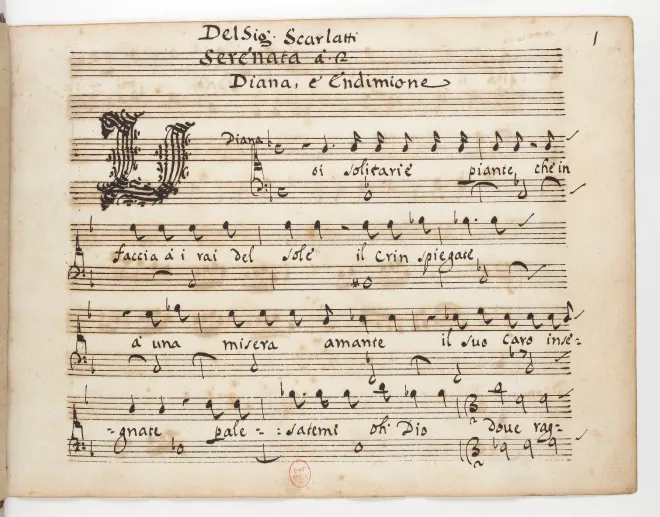 Del Sig. Scarlatti
Serenata à. 2
Diana, e Endimione
1
Diana
Voi Solitarie piante, che in
faccia à i rai del Sole il Crin spiegate
à una misera amante il suo Caro inse=
=gnate pale=:satemi oh Dio dove rag=